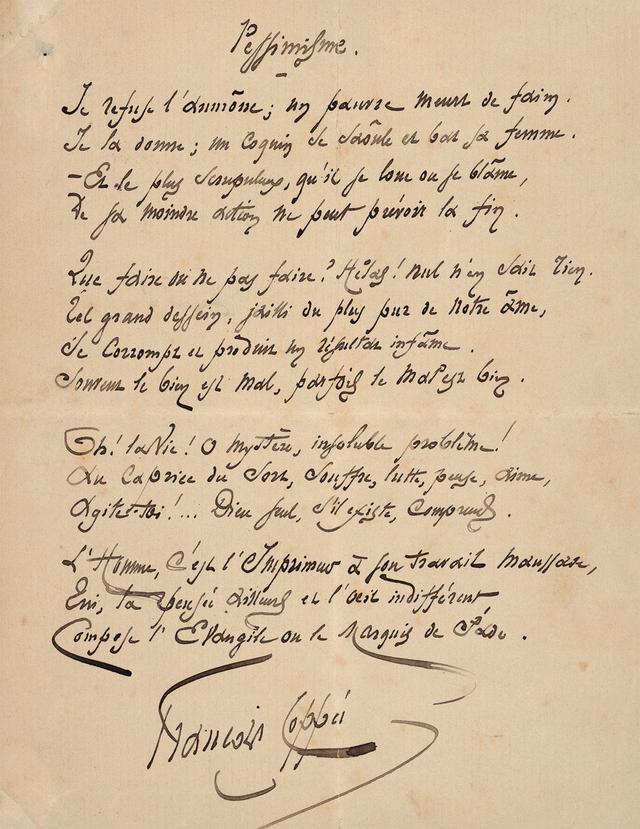 Pessimisme.
Je refuse l'aumône ; un pauvre meurt de faim.
Je la donne ; un coquin se saoûle et bat sa femme.
– Et le plus scrupuleux, qu'il se loue ou se blâme,
De sa moindre action ne peut prévoir la fin.
Que faire ou ne pas faire ? Hélas ! nul n'en sait rien.
Tel grand dessein, jailli du plus pur de notre âme,
Se corrompt et produit un résultat infâme.
Souvent le bien est mal, parfois le mal est bien.
Oh ! la Vie ! O mystère, insoluble problème !
Au caprice du Sort, souffre, lutte, pense, aime,
Agite-toi !... Dieu seul, s'il existe, comprend.
L'Homme, c'est l'Imprimeur à son travail maussade,
Qui, la pensée ailleurs et l'œil indifférent
Compose l'Evangile ou le Marquis de Sade.
François Coppée